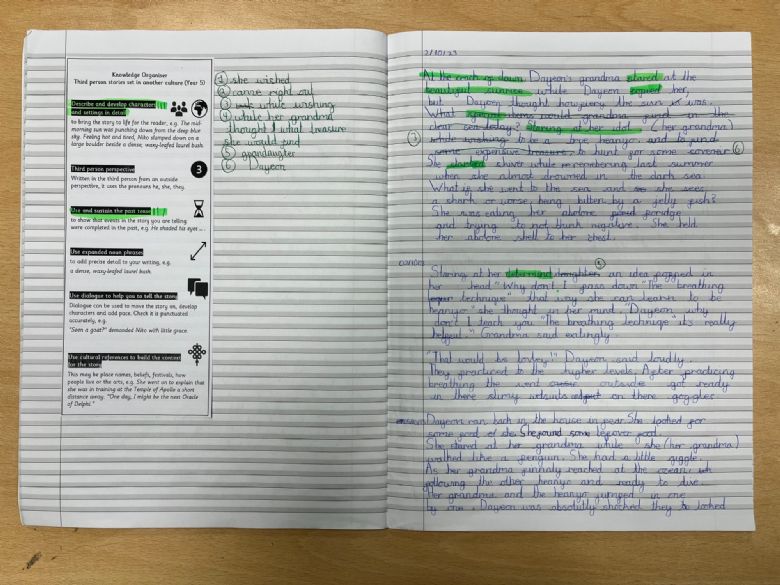 Knowledge Organiser
Third person stories set in another culture (Year 5)
Describe and develop characters
and settings in detail
to bring the story to life for the reader, e.g. The mid-
morning sun was punching down from the deep blue
sky. Feeling hot and tired, Niko slumped down on a
large boulder beside a dense, waxy-leafed laurel bush.
Third person perspective
3
Written in the third person from an outside
perspective, it uses the pronouns he, she, they.
Use and sustain the past tense
to show that events in the story you are telling
were completed in the past, e.g. He shaded his eyes ...
Use expanded noun phrases
to add precise detail to your writing, e.g.
a dense, waxy-leafed laurel bush.
Use dialogue to help you to tell the story
Dialogue can be used to move the story on, develop
characters and add pace. Check it is punctuated
accurately, e.g.
"Seen a goat?" demanded Niko with little grace.
Use cultural references to build the context
for the story
This may be place names, beliefs, festivals, how
people live or the arts, e.g. She went on to explain that
she was in training at the Temple of Apollo a short
distance away. "One day, I might be the next Oracle
of Delphi."
1 she wished
2 came right out
3 while wishing
4 while her grandma
thought what treasure
she would find
5 grandaughter
6 Dayeon
2/10/23
At the crack of dawn Dayeon's grandma stared at the
beautiful sunrise while Dayeon copied her,
but Dayeon thought how fiery the sun was.
What would grandma find in the
clear sea today? Staring at her idol (her grandma)
while wishing to be a true heanyo, and to find
some expensive treasure, to hunt for some
She started shiver while remembering last summer
when she almost drowned in the dark sea.
What if she went to the sea and she sees
a shark or worse, being bitten by a jelly fish?
She was eating her abolone poridge
and trying to not think negitive. She held
her abolone shell to her chest.
Staring at her daughter an idea popped in
her head "Why don't I pass down "The breathing
technique" that way she can learn to be
heanyo" she thought in her mind. "Dayeon why
don't I teach you "The breathing technique" it's really
helpful." Grandma said exitingly.
"That would be lovley!" Dayeon said loudly.
They practiced to the higher levels. After practicing
breathing the went outside got ready
in there slimy wetsuits put on there goggles
Dayeon ran back in the house in fear. She looked for
some She found some leftover food.
She stared at her grandma while she (her grandma)
walked like a penguin. She had a little giggle.
As her grandma finnaly reached at the ocean,
following the other heanyo and ready to dive.
Her grandma and the heanyo jumped in one
by one. Dayeon was absolutly shocked they looked